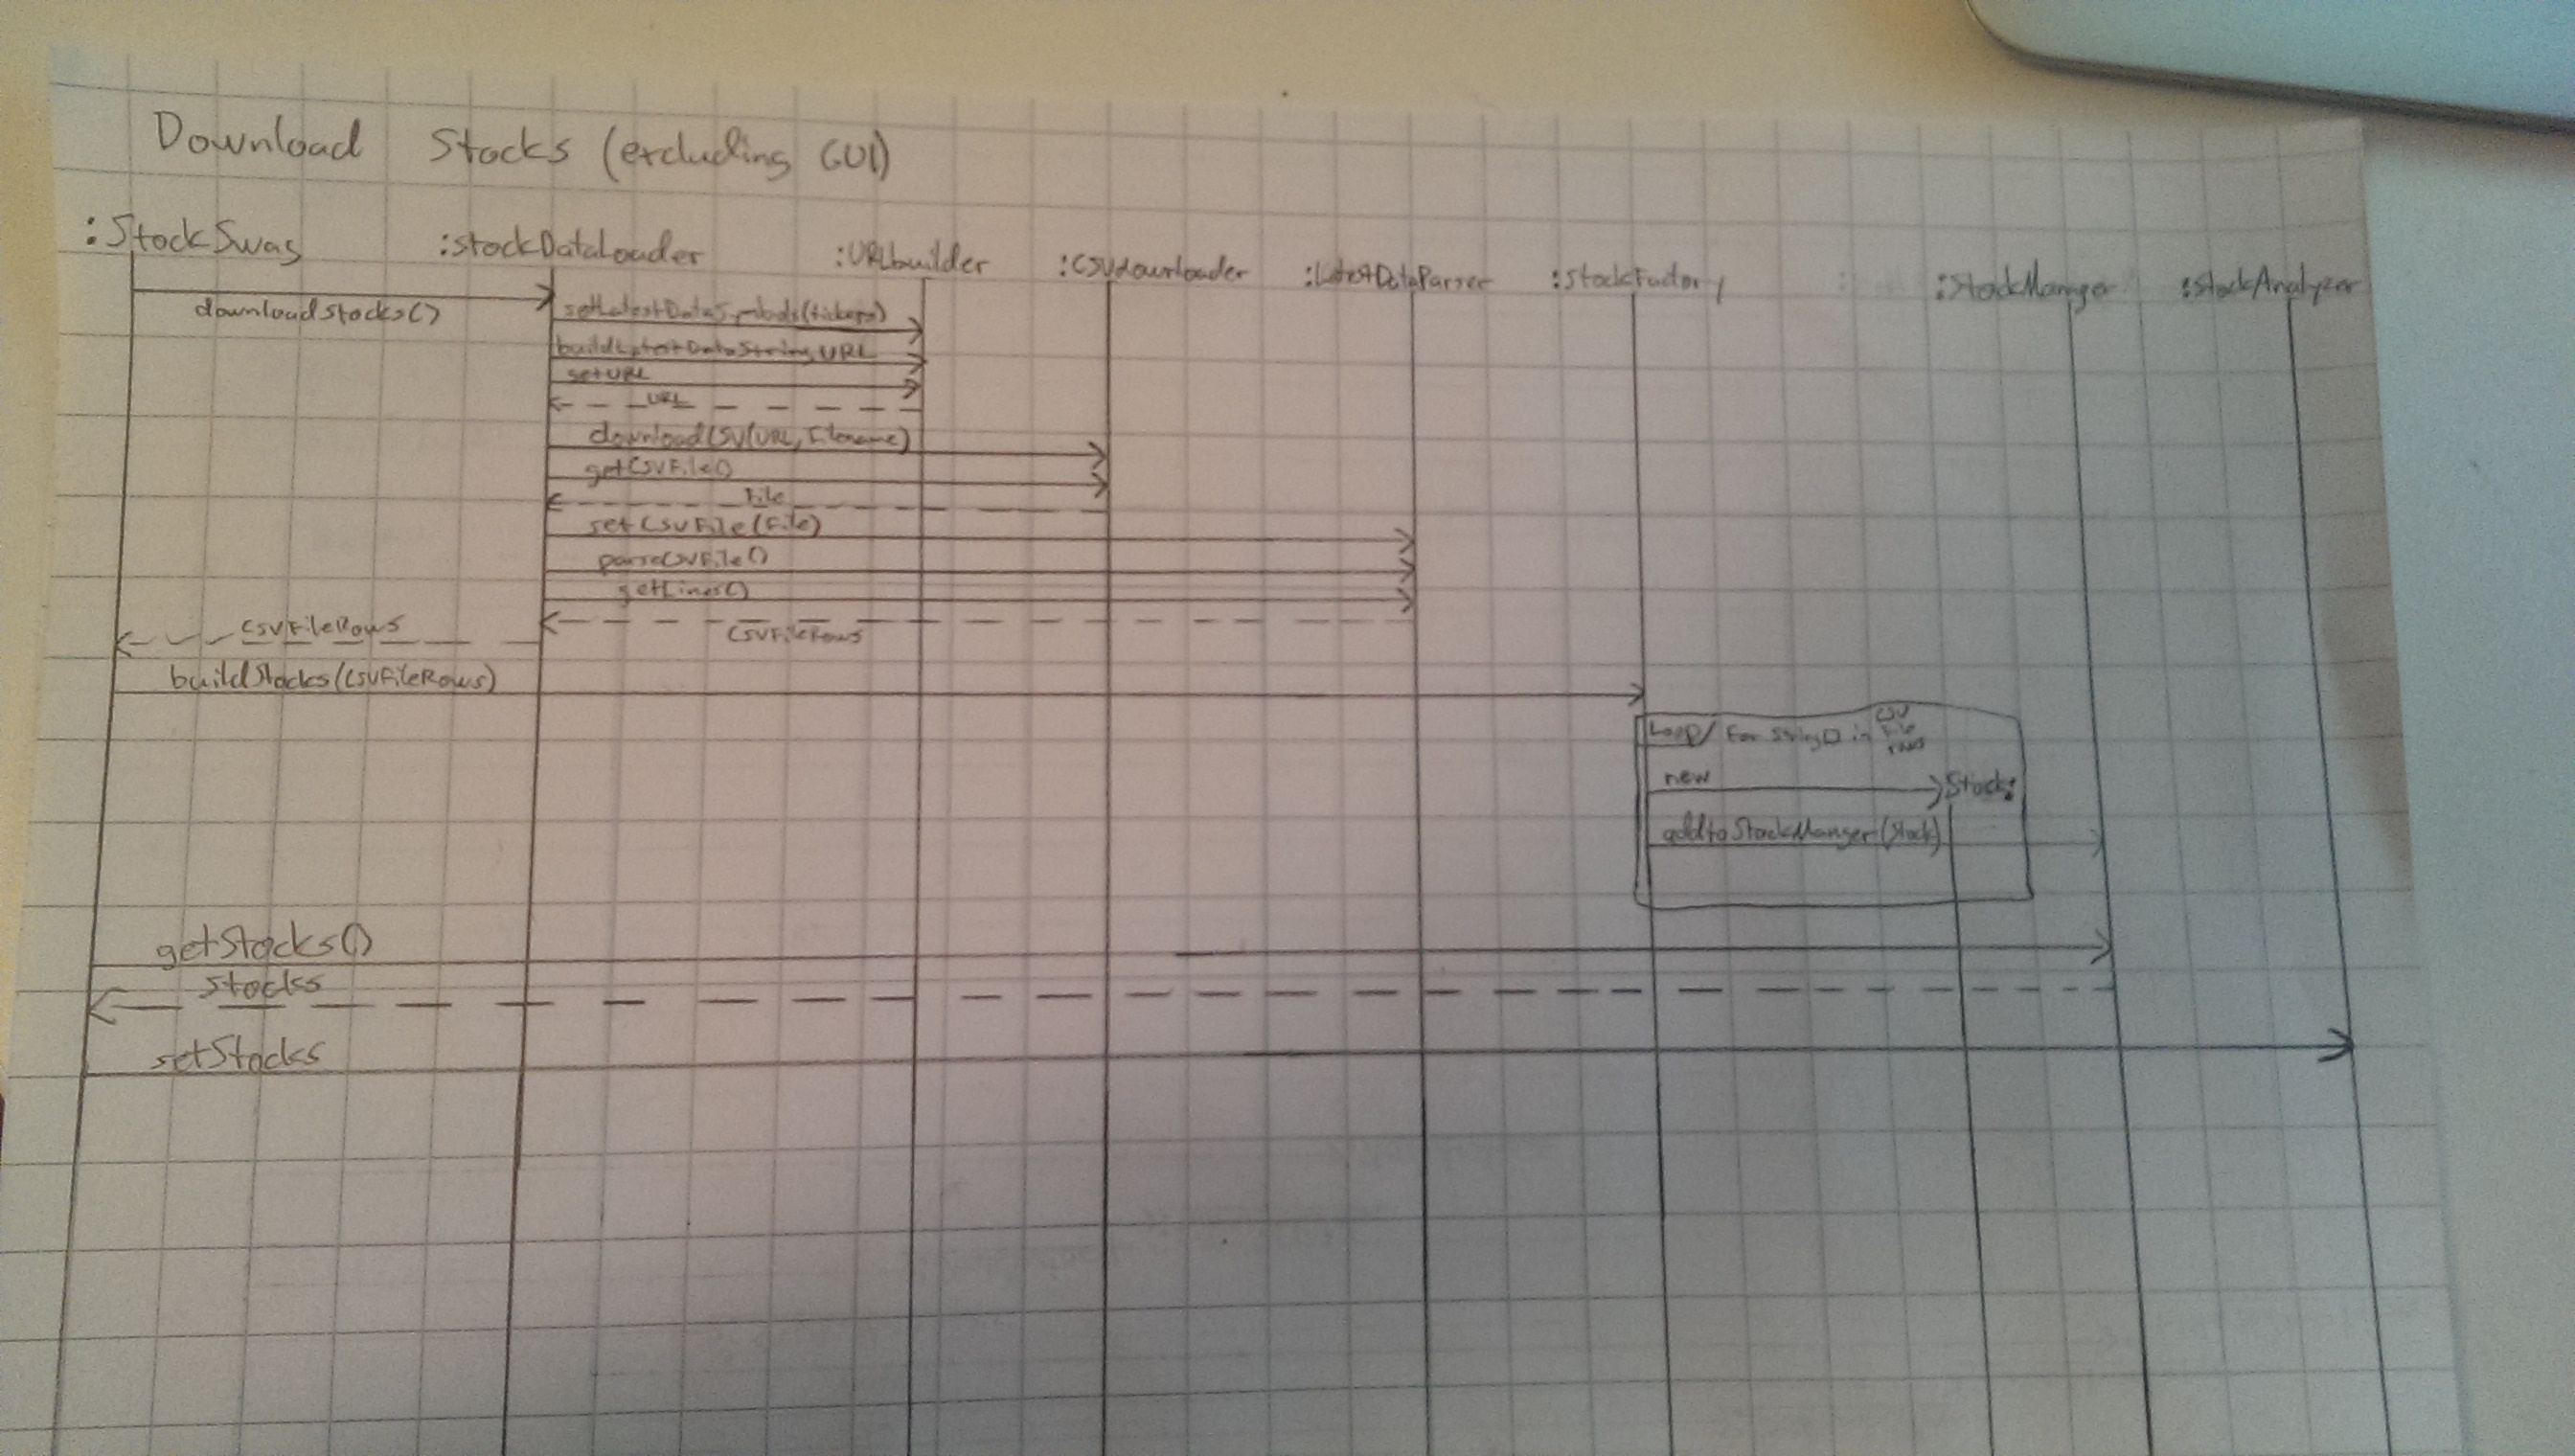 Download Stocks (excluding GUI)
:StockSwag
:stockDataLoader
:URLbuilder
:CSVdownloader
:LatestDataParser
:StockFactory
:StockManager
:StockAnalyzer
downloadStocks()
setLatestDataSymbols(tickers)
buildLatestDataStringURL
getURL
URL
downloadCSV(URL, Filename)
getCSVFile()
File
setCsvFile(File)
parseCSVFile()
getLines()
CSVFileRows
CSVFileRows
buildStocks(CSVFileRows)
Loop/ For String[] in CSV
File
rows
new
Stock:
addtoStockManger(Stock)
getStocks()
stocks
setStocks